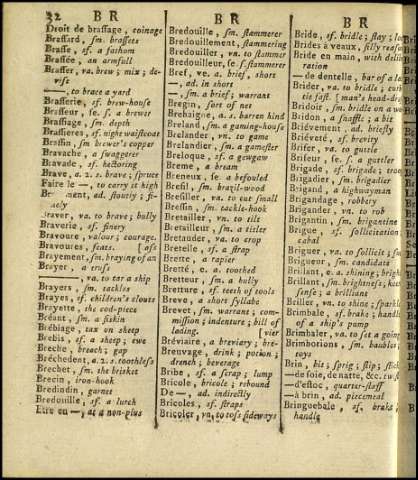 32 B R
B R
B R
Droit de brassage, coinage
Brassard, sm. brassets
Brasse, sf. a fathom
Brassée, an armfull
Brasser, va. brew; mix; devise
—, to brace a yard
Brasserie, sf. brew-house
Brasseur, se. s. a brewer
Brassiage, sm. depth
Brassieres, sf. nighe waistcoat
Brassin, sm brewer's copper
Bravache, a swaggerer
Bravade, sf. hectoring
Brave, a. 2. s. brave; spruce
Faire le —, to carry it high
ment, ad. stoutly;
nely
Braver, va. to brave; bully
Braverie, sf. finery
Bravoure, valour; courage.
Bravoures, feats. [ass
Brayement, sm. braying of an
Brayer, a truss
—, va. to tar a ship
Brayers, sm. tackles
Brayes, sf. children's clouts
Brayette, the cod-piece
Bréant, sm. a siskin
Brébiage, tax on sheep
Brebis, sf. a sheep; ewe
Breche, breach; gap
Bréchedent, a. 2. s. toothless
Brechet, sm. the brisket
Brecin, iron-hook
Bredindin, garnet
Bredouille, sf. a lurch
Etre en —, at a non-plus
Bredouille, sm. stammerer
Bredouillement, stammering
Bredouiller, vn. to stutter
Bredouilleur, se. s. stammerer
Bref, ve. a. brief, short
—, ad. in short
—, sm. a brief; warrant
Bregin, sort of net
Brehaigne, a. s. barren hind
Breland, sm. a gaming-house
Brelander, vn. to game
Brelandier, sm. a gamester
Breloque, sf. a gewgaw
Breme, a bream
Breneux, se. a befouled
Bresil, sm. brazil-wood
Bresiller, va. to cut small
Bressin, sm. tackle-hook
Bretailler, vn. to tilt
Bretailleur, sm. a tilter
Bretauder, va. to crop
Bretelle, sf. a strap
Brette, a rapier
Bretté, e. a. toothed
Bretteur, sm. a bully
Bretture, sf. teeth of tools
Breve, a short syllabe
Brevet, sm. warrant; commission; indenture; bill of
lading. [vier
Bréviaire, a breviary; bre-
Breuvage, drink; potion;
drench; beverage
Bribe, sf. a scrap; lump
Bricole, bricole; rebound
De —, ad. indirectly
Bricoles, sf. straps
Bricoler, vn. to toss sideways
Bride, sf. bridle; stay; lo
Brides à veaux, silly reaso
Bride en main, with delib
ration
— de dentelle, bar of a la
Brider, va. to bridle; cur
tie fast. [man's head-dre
Bridoir, sm. bridle on a wo
Bridon, a snaffle; a bit
Briévement, ad. briefly
Briéveté, sf. brevity
Brifer, va. to guttle
Brifeur, se. s. a guttler
Brigade, sf. brigade; troo
Brigadier, sm. brigadier
Brigand, a highwayman
Brigandage, robbery
Brigander, vn. to rob
Brigantin, sm. brigantine
Brigue, sf. sollicitation;
cabal
Briguer, vn. to sollicit; s
Brigueur, sm. candidate
Brillant, e. a. shining; brigh
Brillant, sm. brightness; kee
sense; a brilliant
Briller, vn. to shine; sparkle
Brimbale, sf. brake; handle
of a ship's pump
Brimbaler, va. to set a going
Brimborions, sm. baubles;
toys
Brin, bit; sprig; slip; stick
—de soie, de natte, &c. twist
—d'estoc, quarter-staff
—à brin, ad. piecemeal
Bringuebale, sf. brake;
handle